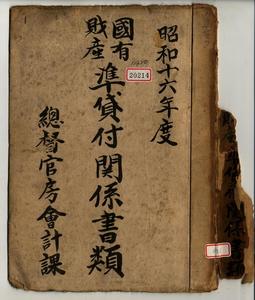 昭和十六年度
國有
財産
準貸付關係書類
20214
總督官房會計課